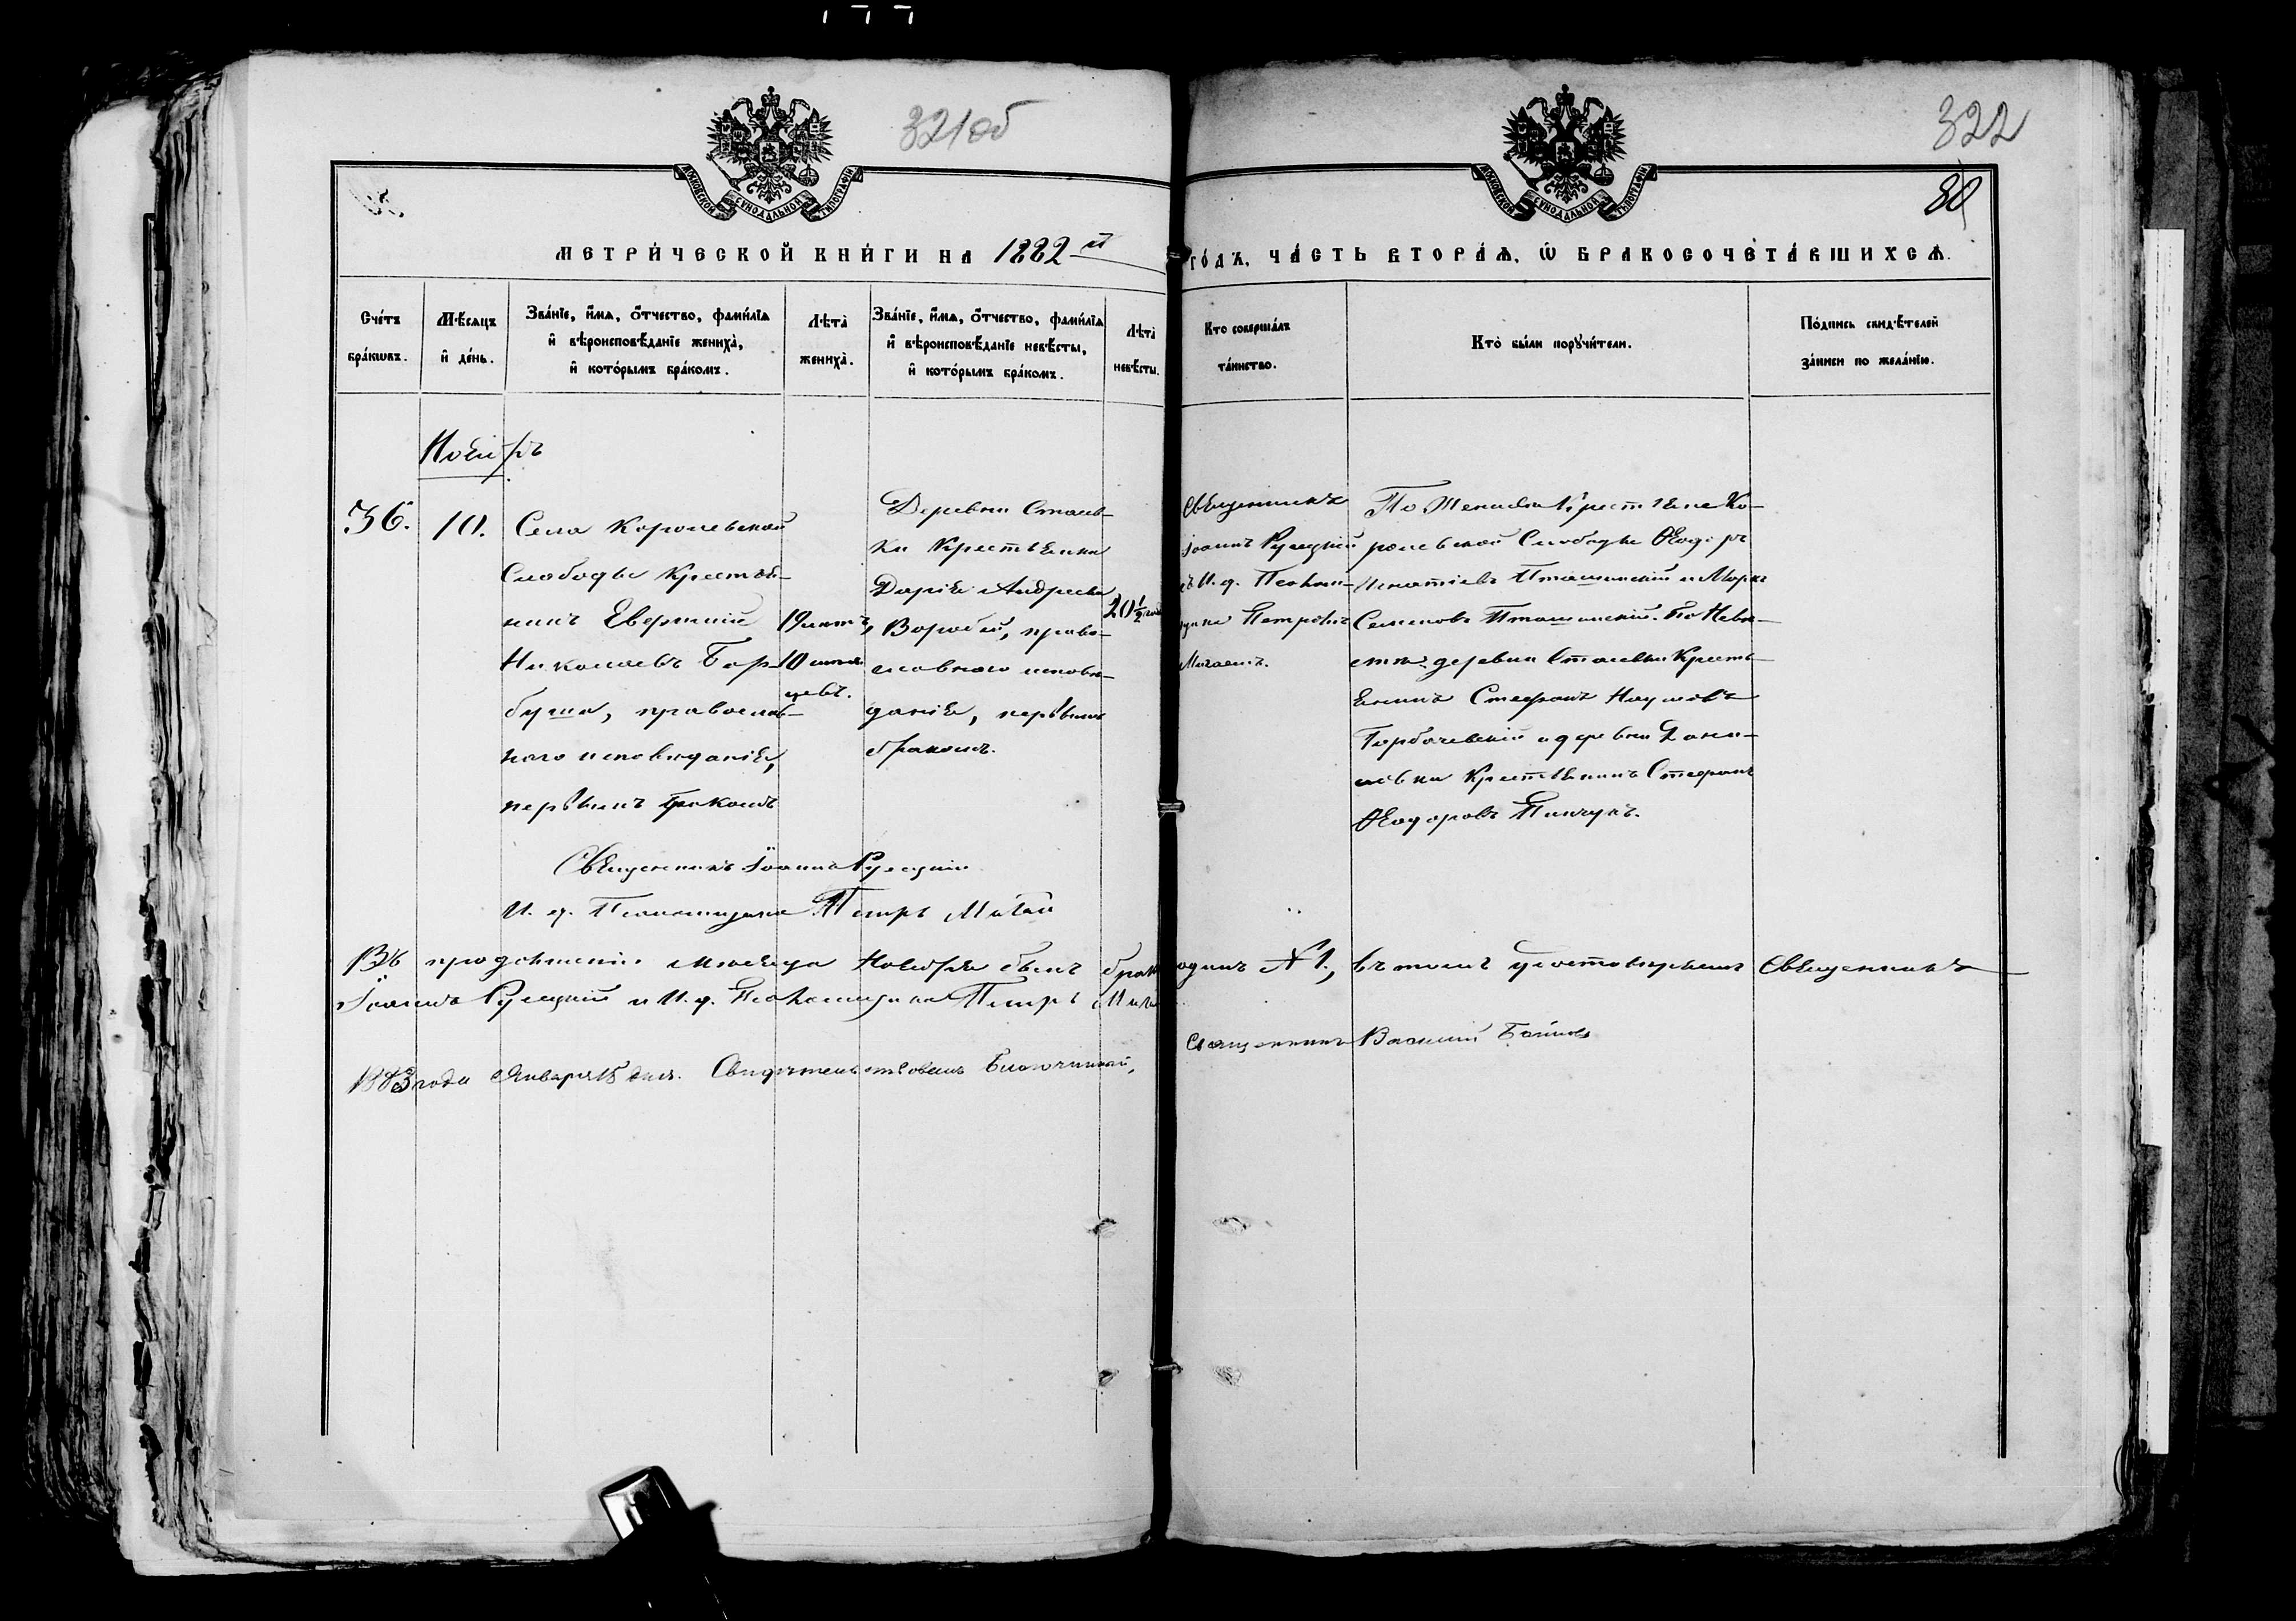 321об
322
80
МОСКОВСКОЙ СѴНОДАЛЬНОЙ ТИПОГРАФІИ
МОСКОВСКОЙ СѴНОДАЛЬНОЙ ТИПОГРАФІИ
МЕТРИ́ЧЕСКОЙ КНИ́ГИ НА 1882й ГО́ДЪ, ЧА́СТЬ ВТОРА́Ѧ, Ѽ БРАКОСОЧЕТА́ВШИХСѦ.
Сче́тъ
бра́кѡвъ.
Мѣ́сѧцъ
и҆ де́нь.
Зва́нїе, и҆́мѧ, ѻ҆́тчество, фами́лїѧ
и҆ вѣроисповѣ́данїе жениха̀,
и҆ кото́рымъ бра́комъ.
Лѣта̀
жениха̀.
Зва́нїе, и҆́мѧ, ѻ҆́тчество, фами́лїѧ
и҆ вѣроисповѣ́данїе невѣ́сты,
и҆ кото́рымъ бра́комъ.
Лѣта̀
невѣ́сты.
Кто соверша́лъ
та́инство.
Кто̀ бы́ли порꙋчи́тели.
По́дпись свидѣ́телей
за́писи по жела́нїю.
Ноябрь
36.
10.
Села Королевской
Слободы крестья-
нинъ Евфимій
Николаевъ Бар-
буша, православ-
наго исповѣданія,
первымъ бракомъ
19 лѣтъ,
10 мѣся-
цевъ.
Деревни Стаев-
ки Крестьянка
Дарія Андреева
Воробей, право-
славнаго исповѣ-
данія, первымъ
бракомъ.
20 1/2 лѣтъ
Священникъ
Іоаннъ Рулицкій
съ И. д. Псалом-
щика Петромъ
По Женихѣ Крестьяне Ко-
ролевской Слободы Ѳеодоръ
Игнатіевъ Пташинскій и Марко
Семеновъ Пташинскій. По Невѣ-
стѣ деревни Стаевки Кресть-
янинъ Стефанъ Наумовъ
Горбачевскій и деревни Дани-
ловки Крестьянинъ Стефанъ
Ѳеодоровъ Пинчукъ.
Священникъ Іоаннъ Рулицкій
И. д. Псаломщика Петръ
Въ продолженіи мѣсяца Ноября былъ бракъ одинъ № 1, въ томъ удостовѣряемъ Священникъ
Іоаннъ Рулицкій и И. д. Псаломщика Петръ
1883 года Января 15 дня. Свидѣтельствовалъ Благочинный, Священникъ Василий